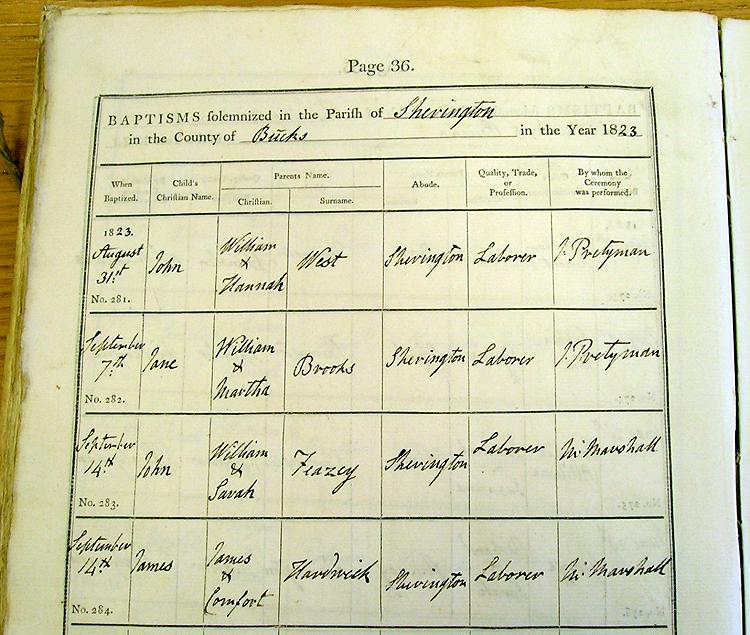 Page 36.
BAPTISMS solemnized in the Parish of Sherington
in the County of Bucks in the Year 1823
When Baptized. Child's Christian Name. Parents Name. Abode. Quality, Trade, or Profession. By whom the Ceremony was performed.
Christian. Surname.
1823.
August 31st John William & Hannah West Sherington Laborer J. Pretyman
No. 281.
September 7th Jane William & Martha Brooks Sherington Laborer J. Pretyman
No. 282.
September 14th John William & Sarah Feazey Sherington Laborer M. Marshall
No. 283.
September 14th James James & Comfort Hardwick Sherington Laborer M. Marshall
No. 284.